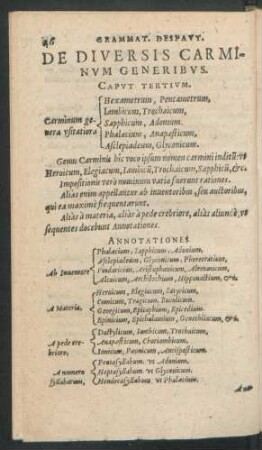 GRAMMAT. DESPAVT.
DE DIVERSIS CARMI-
NVM GENERIBVS.
CAPVT TERTIVM.
Carminum ge-
nera vsitatiora
Hexametrum, Pentametrum,
Iambicum, Trochaicum,
Sapphicum, Adonium.
Phalæcium, Anapæsticum,
Asclepiadæum, Glyconicum.
Genus Carminis hic voco ipsum nomen carmini inditũ: vt
Heroicum, Elegiacum, Iambicũ, Trochaicum, Sapphicũ, &c.
Impositionis verò nominum varia fuerunt rationes.
Aliàs enim appellantur ab inuentoribus, seu auctoribus,
qui ea maximè frequentarunt.
Aliàs à materia, aliàs à pede crebriore, aliàs aliunde, vt
sequentes docebunt Annotationes.
ANNOTATIONES
Ab Inuentore
Phalæcium, Sapphicum, Adonium,
Asclepiadæum, Glyconicum, Pherecratium,
Pindaricum, Aristophanicum, Alcmanicum,
Alcaicum, Archilochium, Hipponactium, &c.
A Materia.
Heroicum, Elegiacum, Satyricum,
Comicum, Tragicum, Bucolicum.
Georgicum, Epitaphium, Epicedium.
Epinicium, Epithalamium, Genethliacum, &c.
A pede cre-
briore.
Dactylicum, Iambicum, Trochaicum,
Anapæsticum, Choriambicum.
Ionicum, Pæonicum, Antispasticum.
A numero
syllabarum,
Pentasyllabum. vt Adonium.
Heptasyllabum vt Glyconicum.
Hendecasyllabum vt Phalæcium.